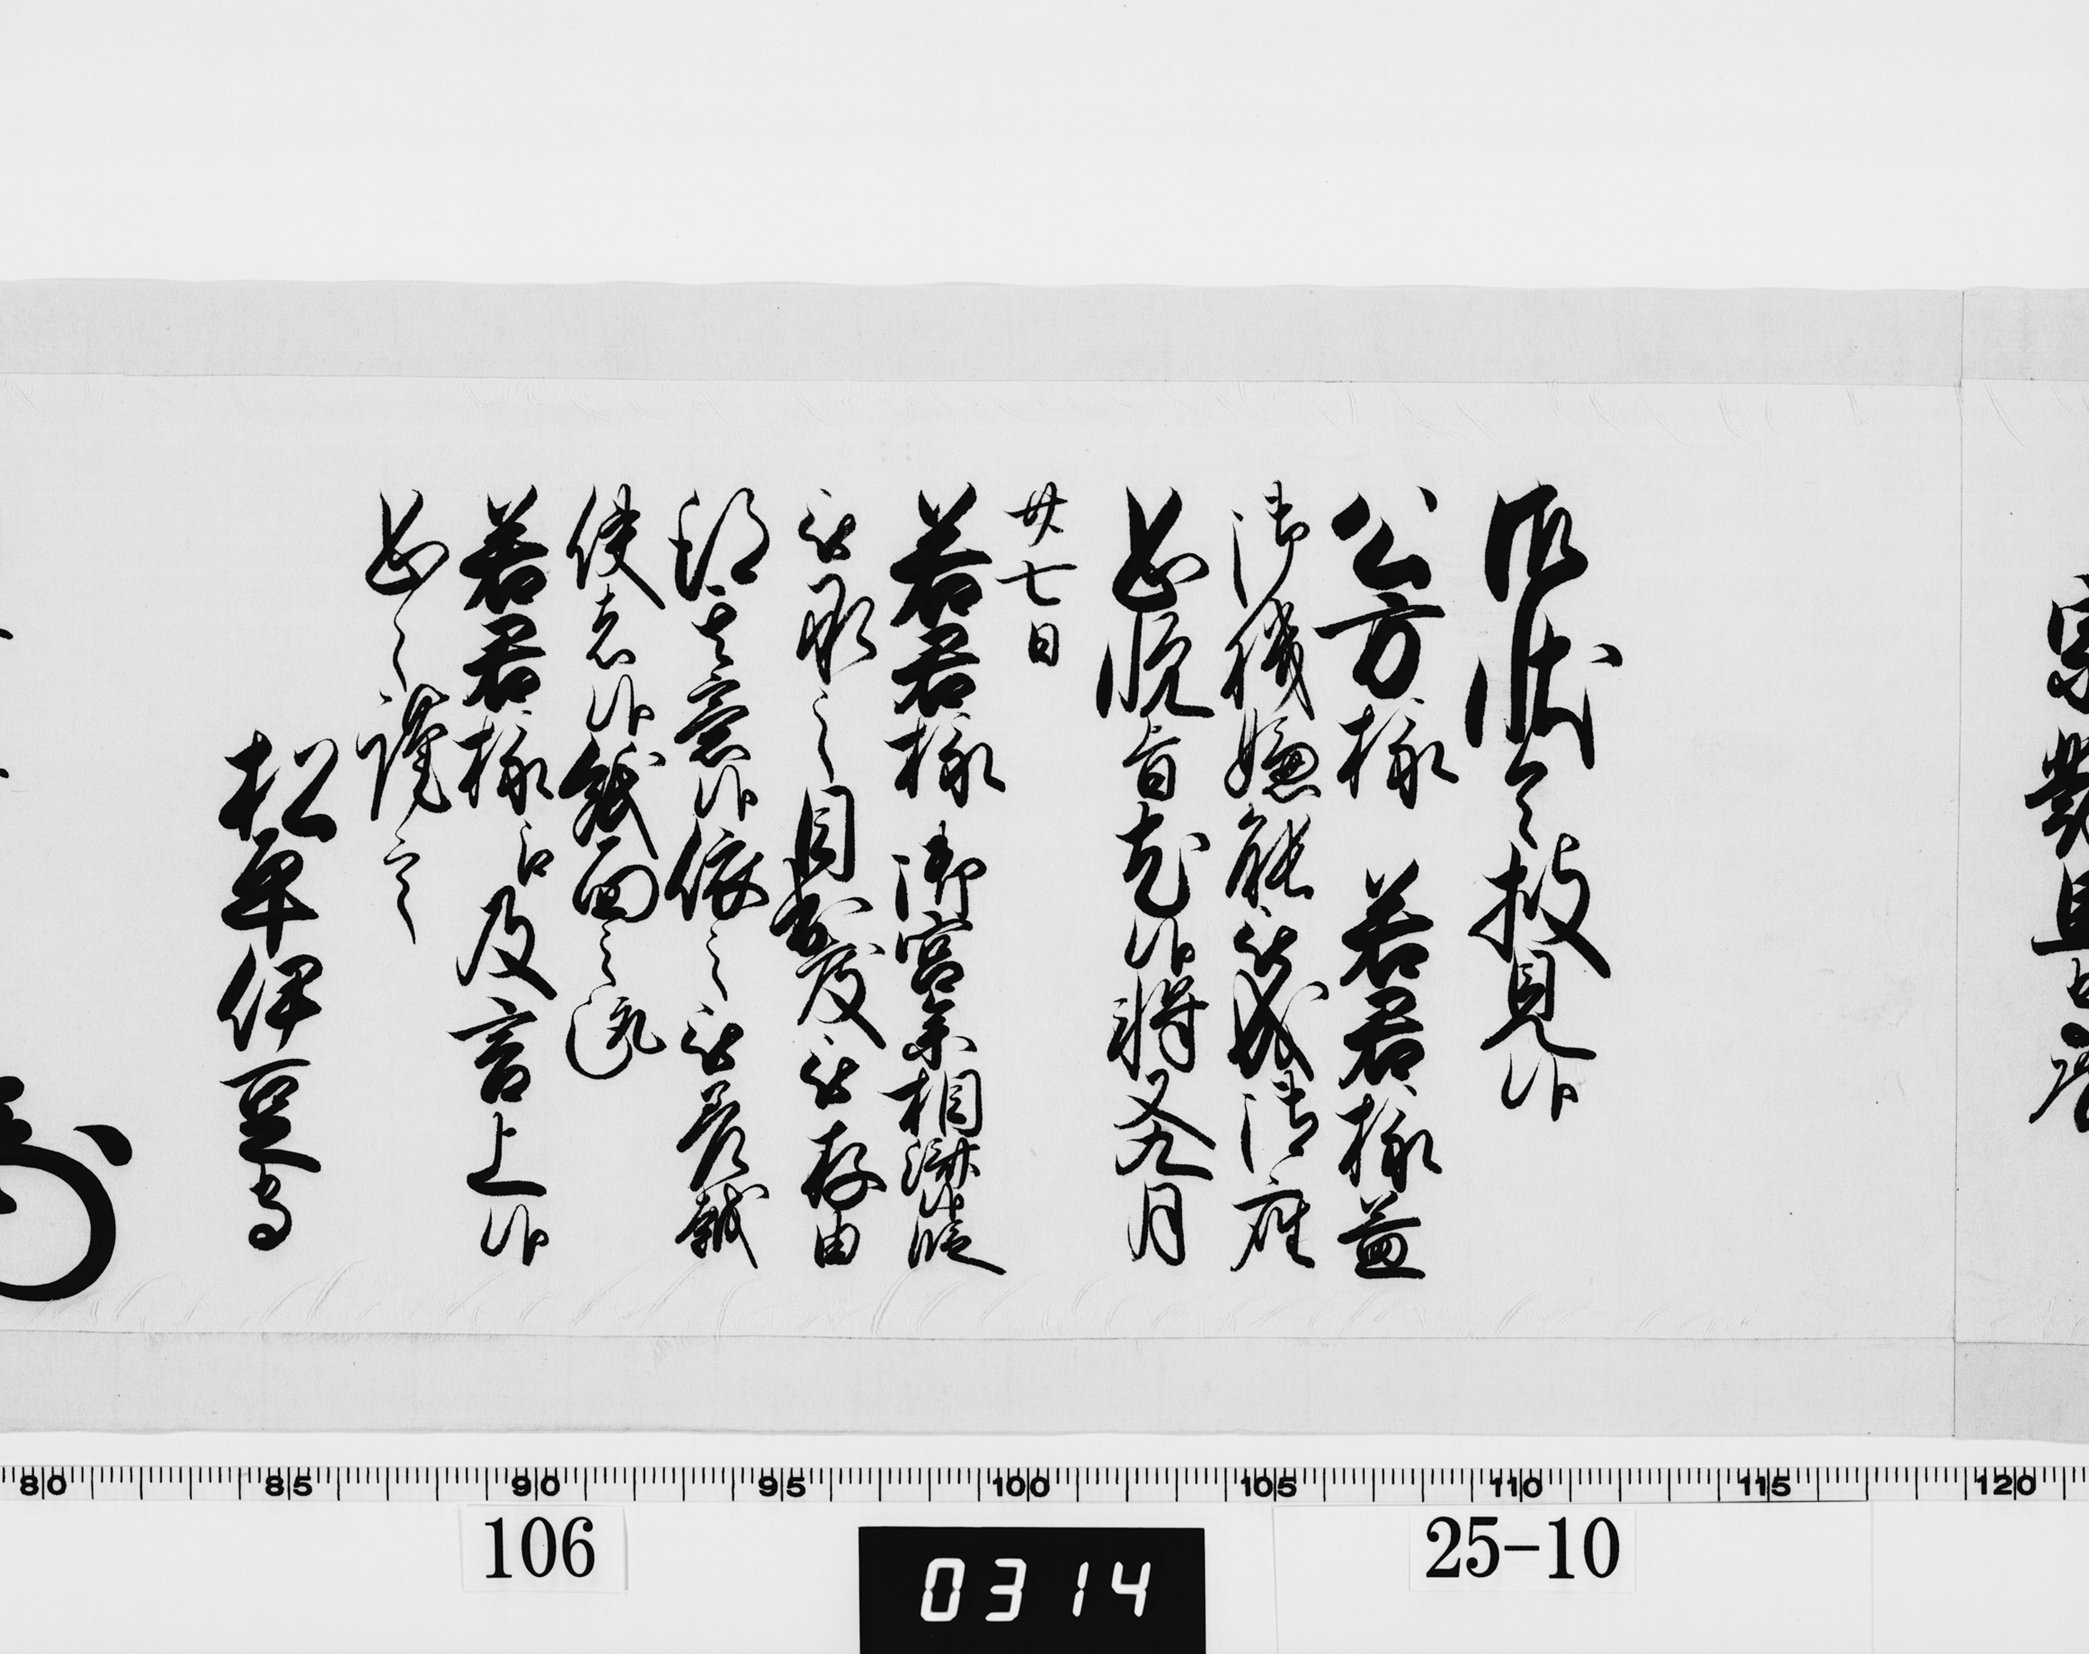 御状令披見候
公方様 若君様益
御機嫌能被成御座
恐悦旨尤候将又九月
廿七日
若君様御宮参相済候段
被承之目出度被存由
得其意候依之被差越
使者候紙面之趣
若君様江及言上候
恐々謹言
松平伊豆守
80 85 90 95 100 105 110 115 120
106
0314
25-10